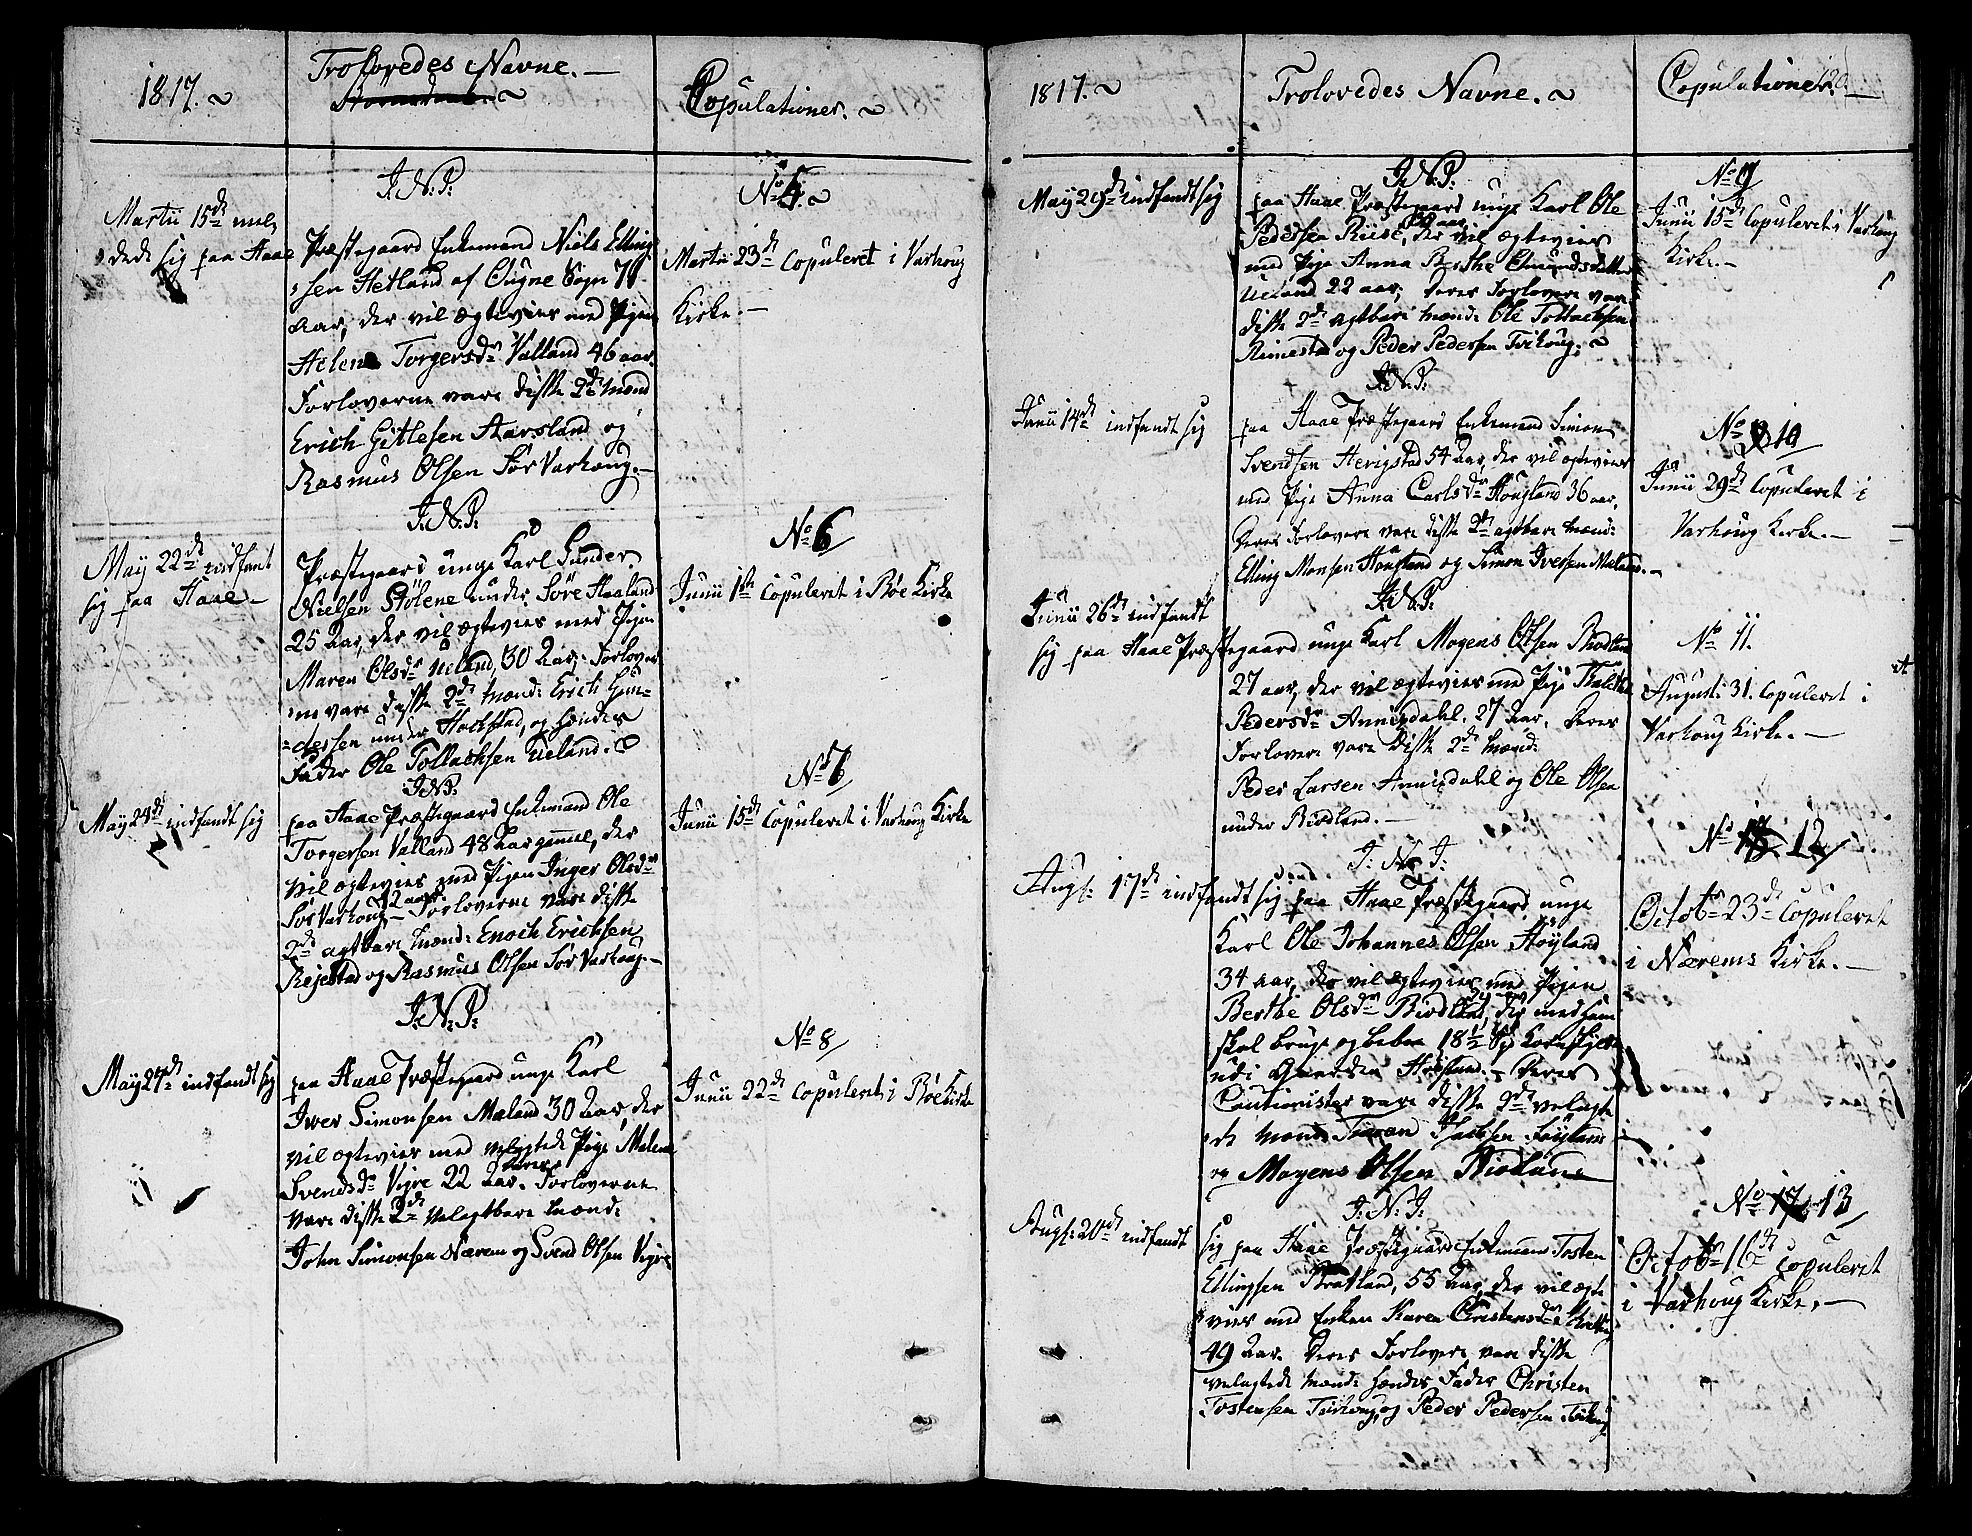 1817.
Trolovedes Navne. —
Copulationer.
I. N. P.
No 5.
Martii 15de mel,
dede sig paa Haae Præstegaard Enkemand Niels Elling,
sen Hetland af Ougne Sogn 71
Aar, der vil ægtevies med Pigen
Helena Torgersdr Valland 46 aar.
Forloverne vare disse 2de Mænd
Erich Gitlesen Aarsland og
Rasmus Olsen Sør Varhoug. —
Martii 23de Copuleret i Varhoug
Kirke. —
I. N. P.
No 6
May 22de indfant
sig paa Haae —
Præstegaard unge Karl Gunder
Nielsen Stølene under Søre Haaland
25 Aar, der vil ægtevies med Pigen
Maren Olsdr Ueland, 30 Aar, Forlover,
ne vare disse 2de Mænd: Erich Gun=
=dersen under Hadstad, og hendes
Fader Ole Tollachsen Ueland.
Junii 1ste Copuleret i Bøe Kirke
I. N. P.
No 7
May 24de indfandt sig
paa Haae Præstegaard Enkemand Ole
Torgersen Valland 48 Aar gammel, der
vil ægtevies med Pigen Inger Olsdr
Sør Varhoug — Forloverne vare disse
2de agtbare Mænd: Enoch Erichsen
Rejestad og Rasmus Olsen Sør Varhoug. —
Junii 15de Copuleret i Varhoug Kirke
I. N. P.
No 8
May 27de indfandt sig
paa Haae Præstegaard unge Karl
Iver Simonsen Mæland 30 Aar, der
vil ægtevies med velagtede Pige Malena
Svendsdr Vigre 22 Aar. Deres Forloverne
vare disse 2de velagtbare Mænd:
John Simonsen Nærem og Svend Olsen Vigre
Junii 22de Copuleret i Bøe Kirke
1817.
Trolovedes Navne.
Copulationer. —
I. N. P.
No 9
May 29de indfandt sig
paa Haae Præstegaard unge Karl Ole
Pedersen Riise, der vil ægtevies
med Pige Anna Berthe Omundsdatter
Ueland 22 aar; deres Forlovere vare
disse 2de agtbare Mænd: Ole Tollachsen
Rimestad og Peder Pedersen Tvihoug.
Junii 15de Copuleret i Varhoug
Kirke. —
I. N. P.
No 10
Junii 14de indfandt sig
paa Haae Præstegaard Enkemand Simon
Svendsen Herigstad 54 Aar, der vil ægtevies
med Pige Anna Carlsdr Hougland 36 aar,
deres Forlovere vare disse 2de agtbare Mænd:
Elling Monsen Haugland og Simon Iversen Mæland. —
Junii 29de Copuleret i
Varhoug Kirke. —
I. N. P.
No 11.
Junii 26de indfandt
sig paa Haae Præstegaard unge Karl Mogens Olsen Birodland
27 aar, der vil ægtevies med Pige
Pedersdr Annisdahl. 27 Aar. deres
Forlovere vare Disse 2de Mænd:
Peder Larsen Annisdahl og Ole Olsen
under Birodland. —
Augusti 31. Copuleret i
Varhoug Kirke. —
I. N. I.
No 12
Augs: 17de indfandt sig paa Haae Præstegaard unge
Karl Ole Johannes Olsen Høyland
34 aar, der vil ægtevies med Pigen
Berthe Olsdr Birodland, der med ham
skal bruge og beboe 18½ Sp Kornskyld
udi Gaarden Høyland. — Deres
Cautionister vare disse 2de velagte
de Mænd Høyland
og Mogens Olsen Birodland
Octobr 23de Copuleret
i Nærems Kirke. —
I. N. I.
No 13
Augs: 20de indfandt
sig paa Haae Præstegaard Enkemand Tosten
Ellingsen Bratland, 55 Aar, der vil ægte
vies med Enken Karen Christensdr
49 Aar. Deres Forlovere vare disse
velagtede Mænd: hendes Fader Christen
Tostensen Tvihoug, og Peder Pedersen Tvihoug
Octobr 16de Copuleret
i Varhoug Kirke. —